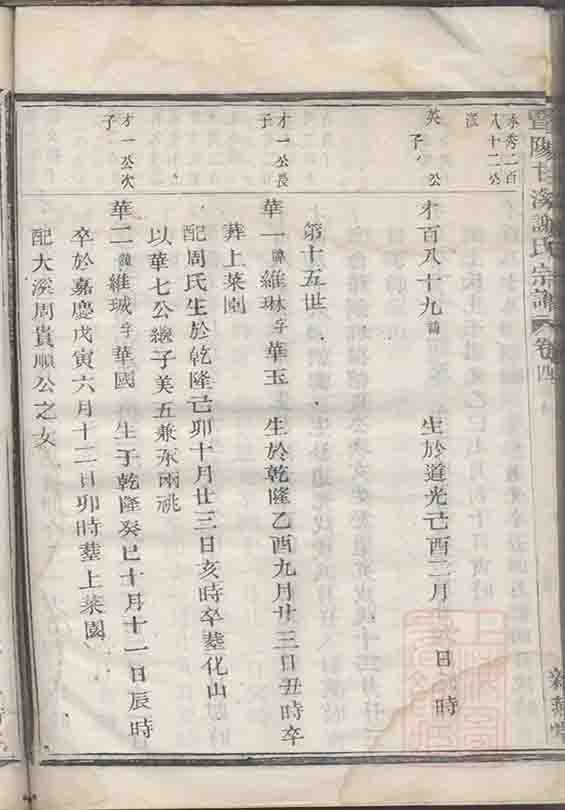 暨陽上溪謝氏宗譜 卷四
永秀二百
八十二公
英 公
子
才百八十九諱 生於道光己酉二月 日 時
第十五世
才一公長
子
華一諱維琳字華玉 生於乾隆乙酉九月廿三日丑時卒
葬上菜園
配周氏生於乾隆己卯十月廿三日亥時卒塟化山
以華七公繼子美五兼承兩祧
才一公次
子
華二諱維珹字華國 生于乾隆癸巳十月十一日辰時
卒於嘉慶戊寅六月十三日卯時塟上菜園
配大溪周貴順公之女